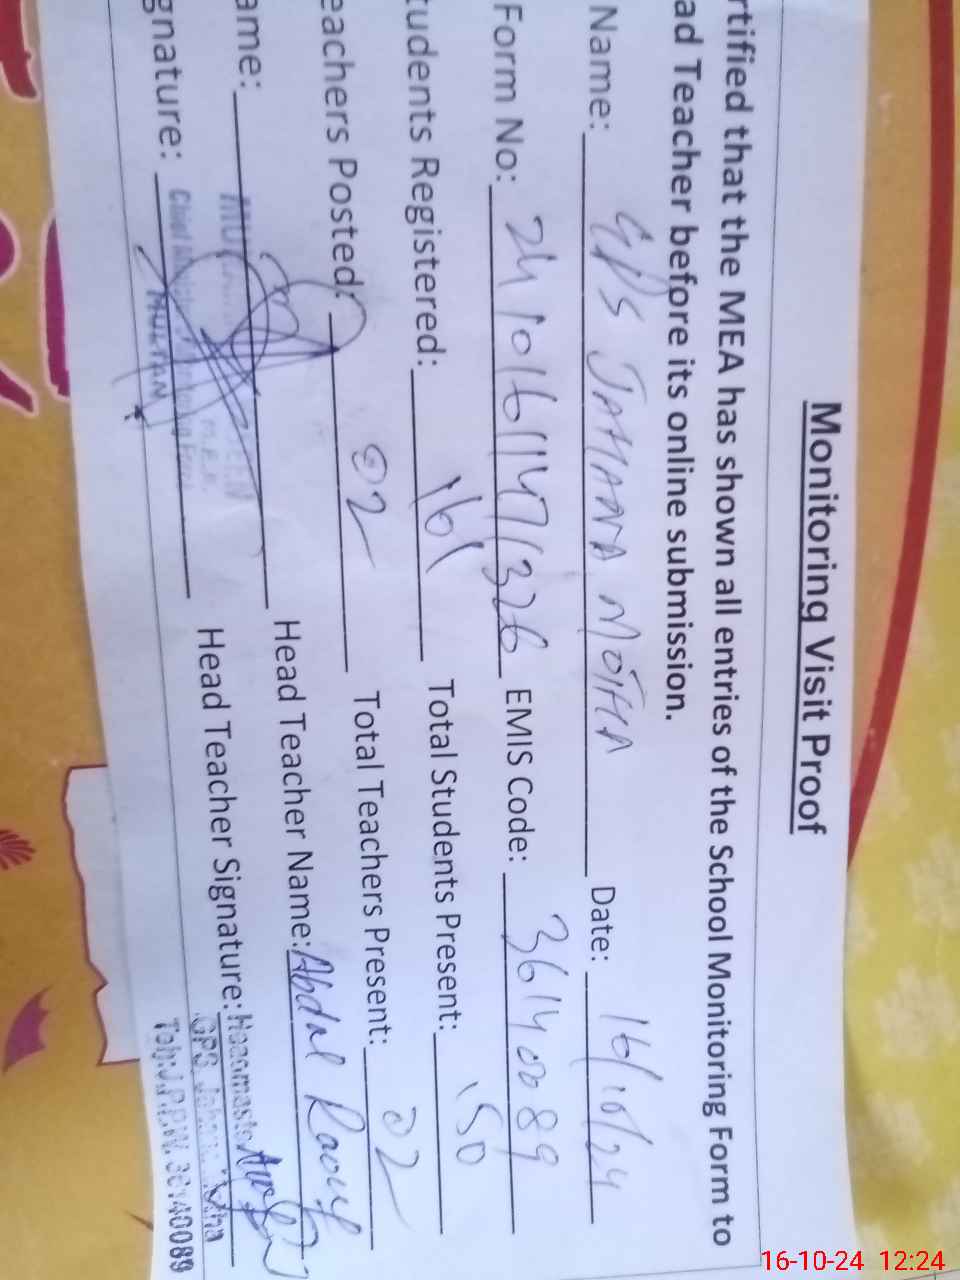 Monitoring Visit Proof
rtified that the MEA has shown all entries of the School Monitoring Form to
ad Teacher before its online submission.
Name: G/P/S JAHANA MOTHA Date: 16/10/24
Form No: 24101611471326 EMIS Code: 36140089
tudents Registered: 161 Total Students Present: 150
eachers Posted: 02 Total Teachers Present: 02
ame: Head Teacher Name: Abdul Raouf
gnature: MULTAN Head Teacher Signature: Headmaster
GPS
36140089
16-10-24 12:24